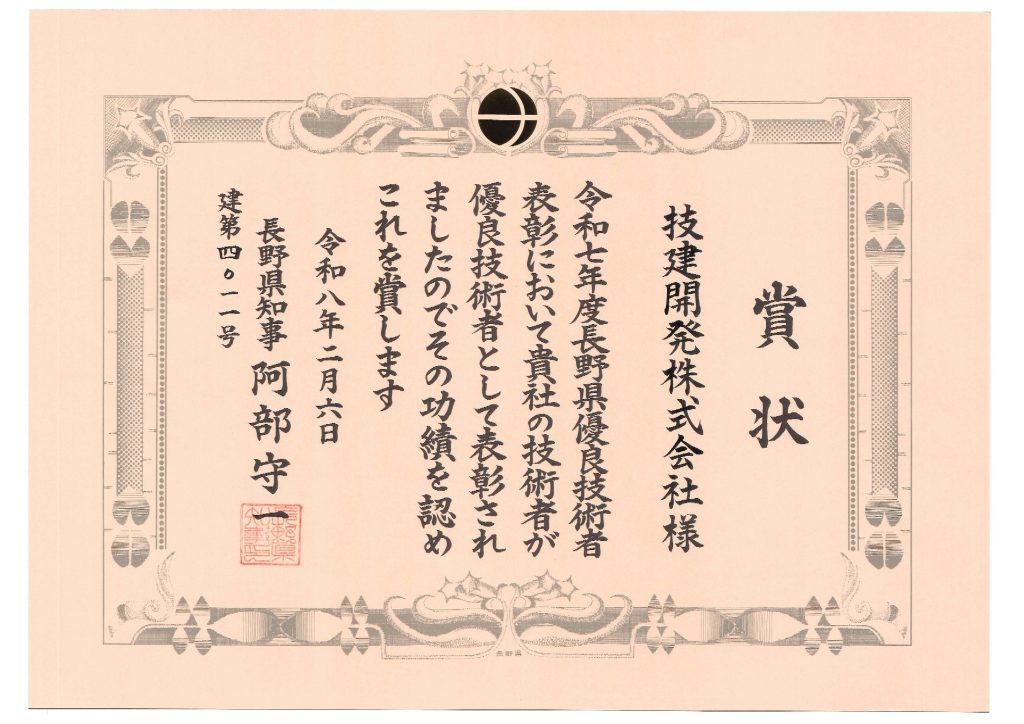 賞状
技建開発株式会社様
令和七年度長野県優良技術者
表彰において貴社の技術者が
優良技術者として表彰され
ましたのでその功績を認め
これを賞します
令和八年二月六日
長野県知事 阿部守一
建第四〇一一号
長野県